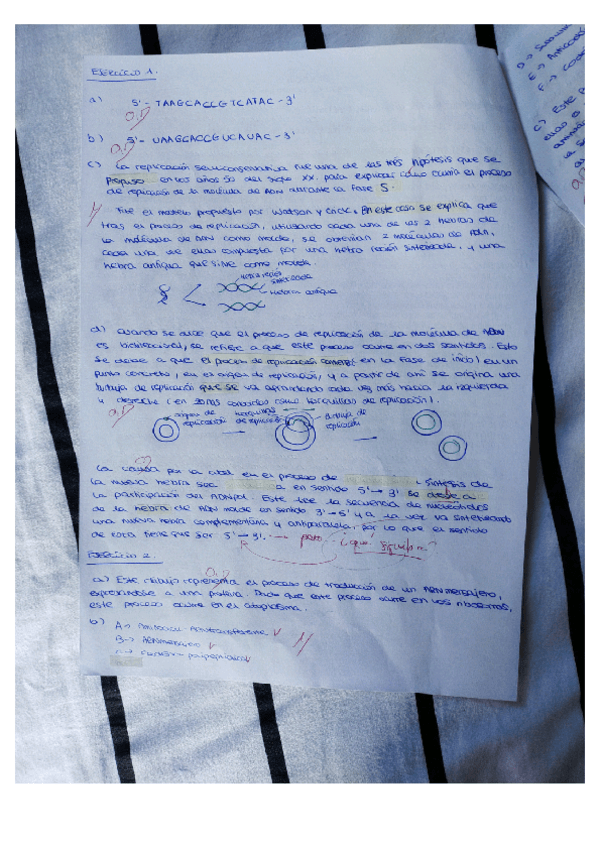 Ejercicio 1.
a) 5'- TAAGCACCGTCATAC - 3'
b) 5'- UAAGCACCGUCAUAC - 3'
c) La replicación semiconservativa fue una de las tres hipótesis que se
propuso en los años 50 del siglo XX para explicar cómo ocurría el proceso
de replicación de la molécula de ADN durante la fase S.
Fue el modelo propuesto por Watson y Crick. En este caso se explica que
tras el proceso de replicación, utilizando cada una de las 2 hebras de
la molécula de ADN como molde, se obtenían 2 moléculas de ADN,
cada una de ellas compuesta por una hebra recién sintetizada, y una
hebra antigua que sirve como molde.
hebra recién
sintetizada
Hebra antigua
d) Cuando se dice que el proceso de replicación de la molécula de ADN
es bidireccional, se refiere a que este proceso ocurre en dos sentidos. Esto
se debe a que el proceso de replicación comienza en la fase de inicio en un
punto concreto, en el origen de replicación, y a partir de ahí se origina una
burbuja de replicación que se va agrandando cada vez más hacia la izquierda
y derecha (en zonas conocidas como horquillas de replicación).
origen de replicación
horquillas de replicación
burbuja de replicación
La causa por la cual en el proceso de síntesis de
la nueva hebra sea a en sentido 5' → 3' se debe a
la participación del ADNpol. Este lee la secuencia de nucleótidos
de la hebra de ADN molde en sentido 3' → 5' y a la vez va sintetizando
una nueva hebra complementaria y antiparalela, por lo que el sentido
de esta tiene que ser 5' → 3'. → pero ¿qué significa?
Ejercicio 2.
a) Este dibujo representa el proceso de traducción de un ARN mensajero,
expresándose a una proteína. Dado que este proceso ocurre en los ribosomas,
este proceso ocurre en el citoplasma.
b) A →
B → ARN mensajero
C →
c) Este